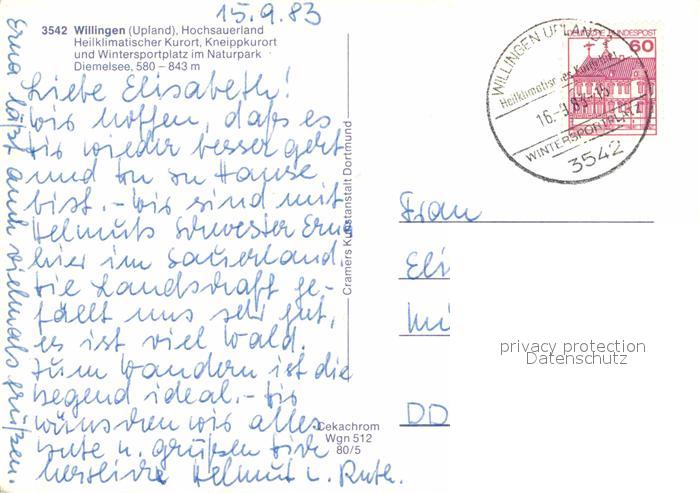 15.9.83
3542 Willingen (Upland), Hochsauerland
Heilklimatischer Kurort, Kneippkurort
und Wintersportplatz im Naturpark
Diemelsee, 580 – 843 m
Liebe Elisabeth!
Wir hoffen, daß es
Dir wieder besser geht
und Du zu Hause
bist. - Wir sind mit
Helmuts Schwester Erna
hier im Sauerland.
Die Landschaft ge-
fällt uns sehr gut,
es ist viel Wald.
Zum Wandern ist die
Gegend ideal. - Dir
wünschen wir alles
Gute u. grüßen Dich
herzlich Helmut u. Ruth.
Erna läßt auch vielmals grüßen.
Cramers Kunstanstalt Dortmund
Cekachrom
Wgn 512
80/5
WILLINGEN UPLAND
Heilklimatisches
16.-9.83-15
WINTERSPORTPLATZ
3542
DEUTSCHE BUNDESPOST
60
Frau
Eli
DD
privacy protection
Datenschutz